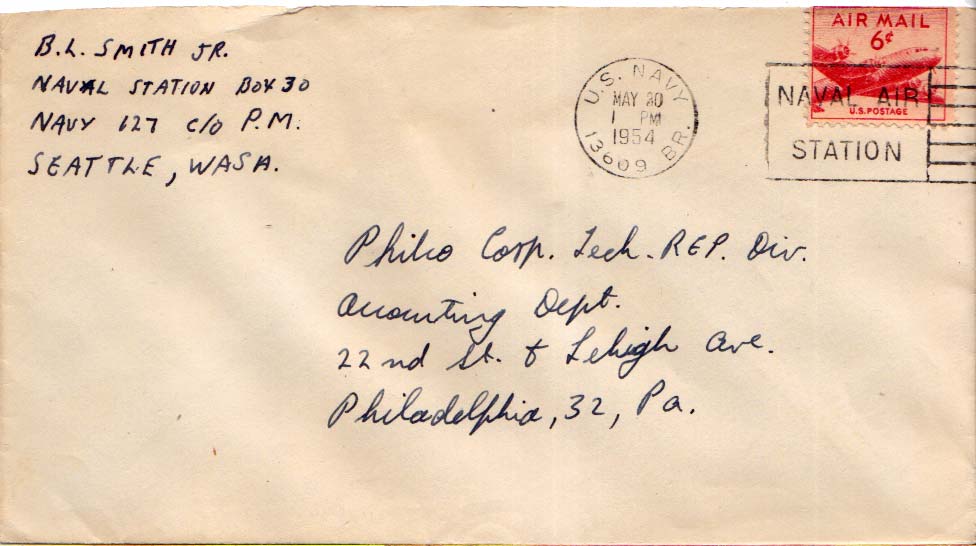 B.L. SMITH JR.
NAVAL STATION BOX 30
NAVY 127 C/O P.M.
SEATTLE, WASH.
U.S. NAVY
MAY 30
1 PM
1954
13609 BR.
AIR MAIL
6¢
U.S. POSTAGE
NAVAL AIR
STATION
Philco Corp. Tech. REP. Div.
Accounting Dept.
22nd St. & Lehigh Ave.
Philadelphia, 32, Pa.